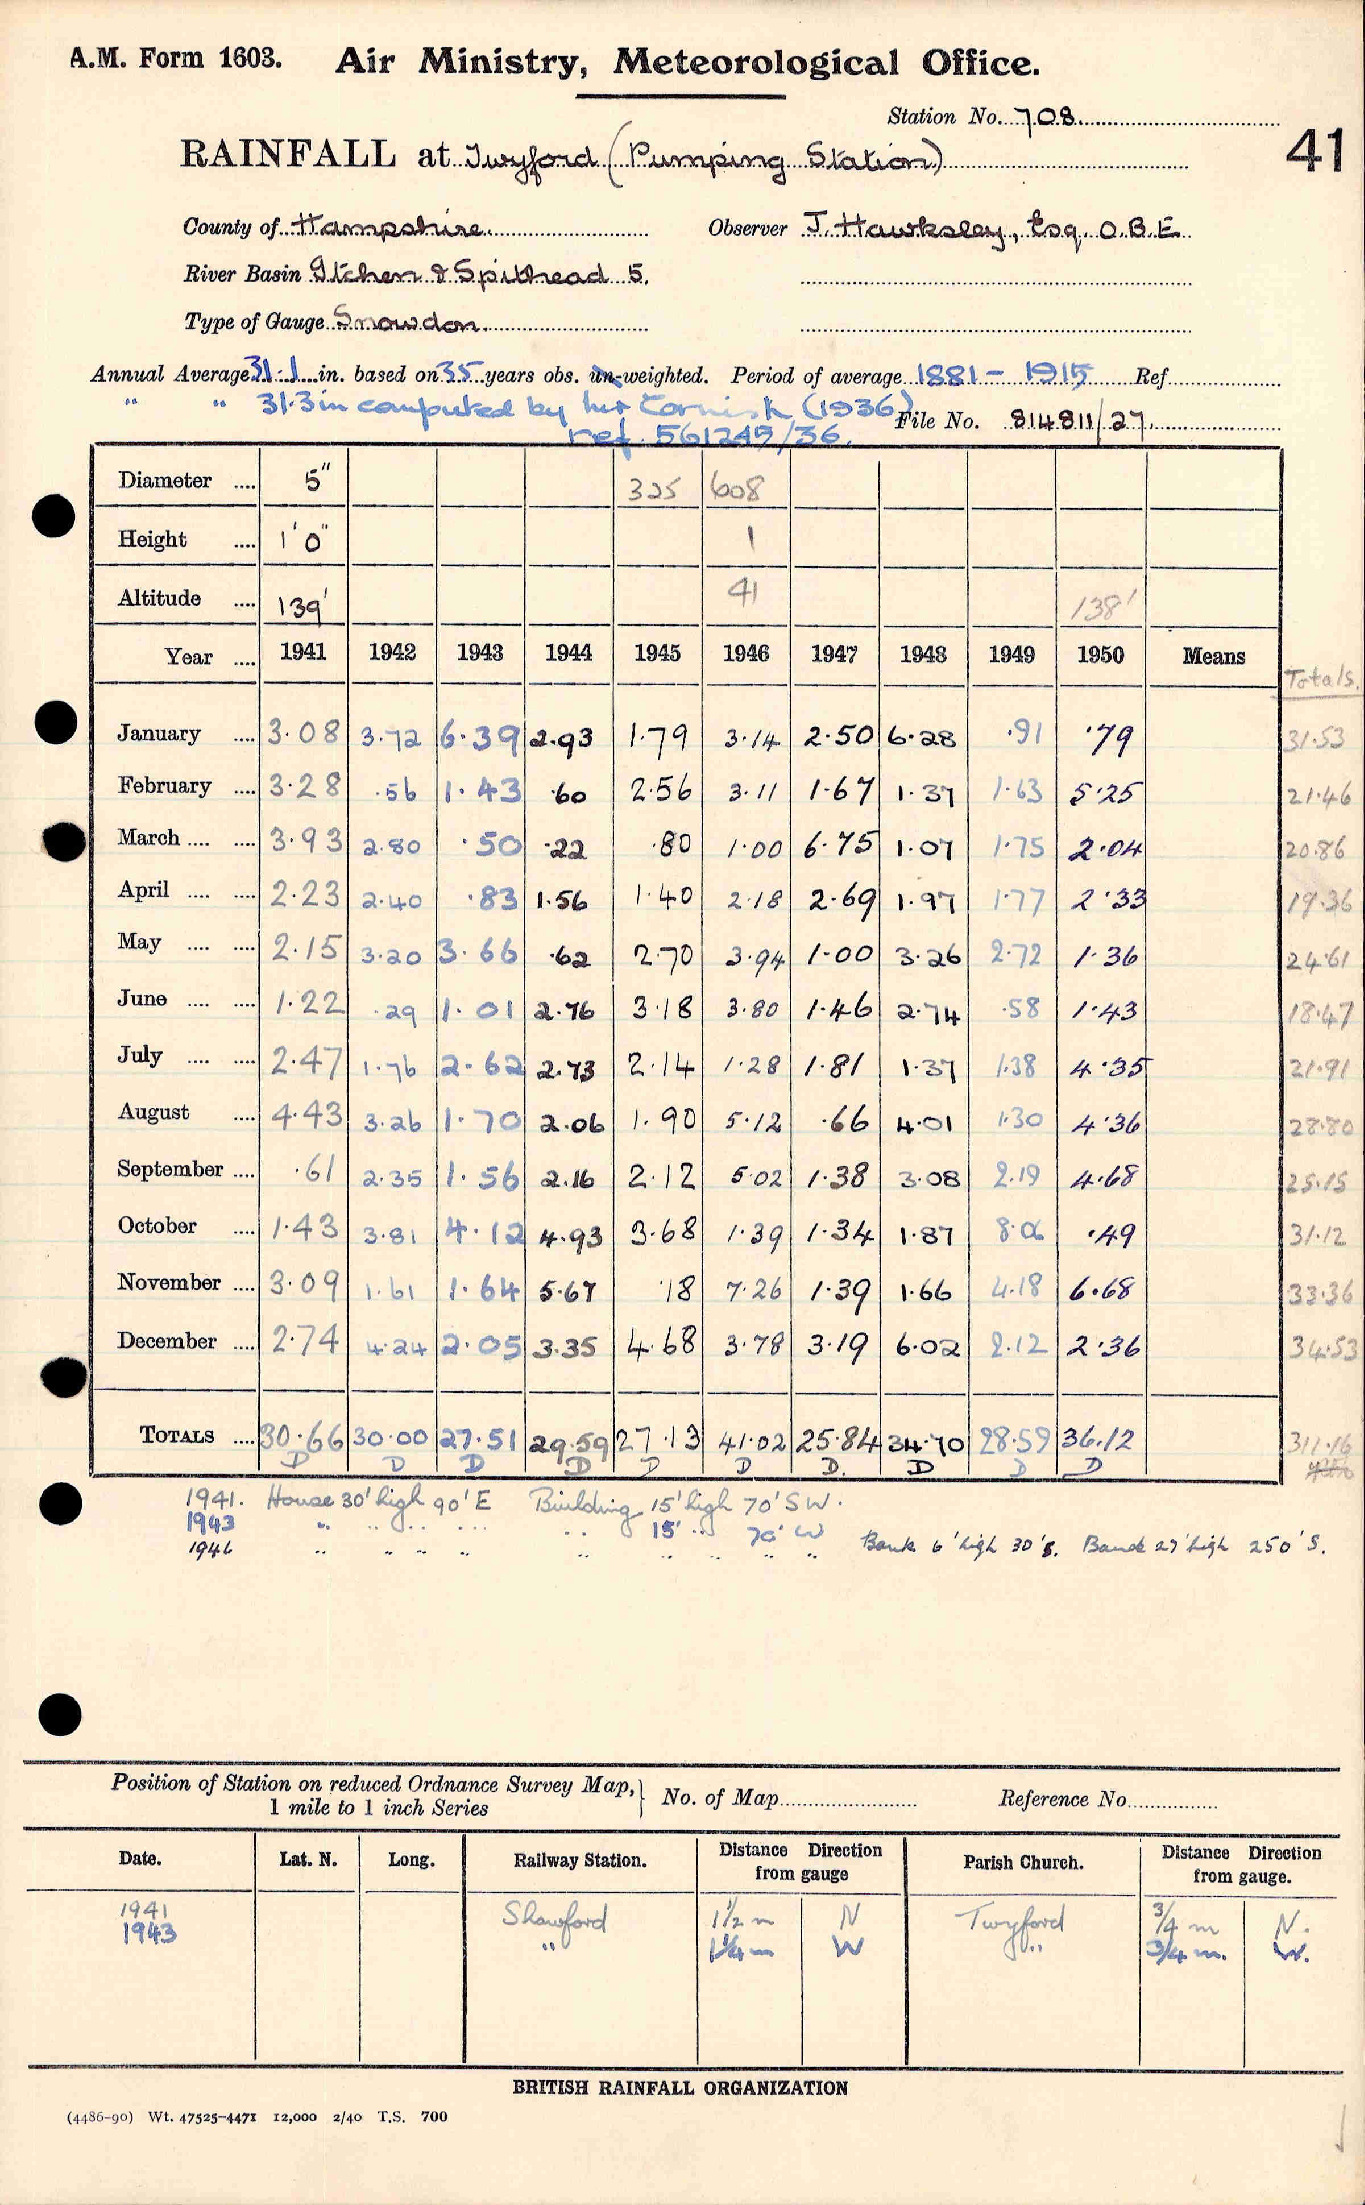 A.M. Form 1603. Air Ministry, Meteorological Office.
Station No. 708
41
RAINFALL at Twyford (Pumping Station)
County of Hampshire Observer J. Hawksley, Esq. O.B.E.
River Basin Itchen & Spithead 5.
Type of Gauge Snowdon
Annual Average 31.1 in. based on 35 years obs. un-weighted. Period of average 1881 - 1915 Ref
" " 31.3in computed by Cornish (1936) File No. 814811/27
ref. 561245/36.
Diameter .... 5" 325 608
Height .... 1'0" 1
Altitude .... 139' 41 138'
Year .... 1941 1942 1943 1944 1945 1946 1947 1948 1949 1950 Means Totals.
January .... 3.08 3.72 6.39 2.93 1.79 3.14 2.50 6.28 .91 .79 31.53
February .... 3.28 .56 1.43 .60 2.56 3.11 1.67 1.37 1.63 5.25 21.46
March .... .... 3.93 2.80 .50 .22 .80 1.00 6.75 1.07 1.75 2.04 20.86
April .... .... 2.23 2.40 .83 1.56 1.40 2.18 2.69 1.97 1.77 2.33 19.36
May .... .... 2.15 3.20 3.66 .62 2.70 3.94 1.00 3.26 2.72 1.36 24.61
June .... .... 1.22 .29 1.01 2.76 3.18 3.80 1.46 2.74 .58 1.43 18.47
July .... .... 2.47 1.76 2.62 2.73 2.14 1.28 1.81 1.37 1.38 4.35 21.91
August .... 4.43 3.26 1.70 2.06 1.90 5.12 .66 4.01 1.30 4.36 28.80
September .... .61 2.35 1.56 2.16 2.12 5.02 1.38 3.08 2.19 4.68 25.15
October .... 1.43 3.81 4.12 4.93 3.68 1.39 1.34 1.87 8.06 .49 31.12
November .... 3.09 1.61 1.64 5.67 .18 7.26 1.39 1.66 4.18 6.68 33.36
December .... 2.74 4.24 2.05 3.35 4.68 3.78 3.19 6.02 2.12 2.36 34.53
TOTALS .... 30.66 30.00 27.51 29.59 27.13 41.02 25.84 34.70 28.59 36.12 311.16
D D D D D D D. D D D
1941. House 30' high 90' E Building 15' high 70' SW.
1943 " " " " " 15' " 70' W
1946 " " " " " " " " " Bank 6' high 30' S. Bank 27' high 250' S.
Position of Station on reduced Ordnance Survey Map, } No. of Map Reference No.
1 mile to 1 inch Series
Date. Lat. N. Long. Railway Station. Distance Direction from gauge Parish Church. Distance Direction from gauge.
1941 Shawford 1½ m N Twyford ¾ m N.
1943 " 1¼ m W " ¾ m. W.
BRITISH RAINFALL ORGANIZATION
(4486-90) Wt. 47525-4471 12,000 2/40 T.S. 700